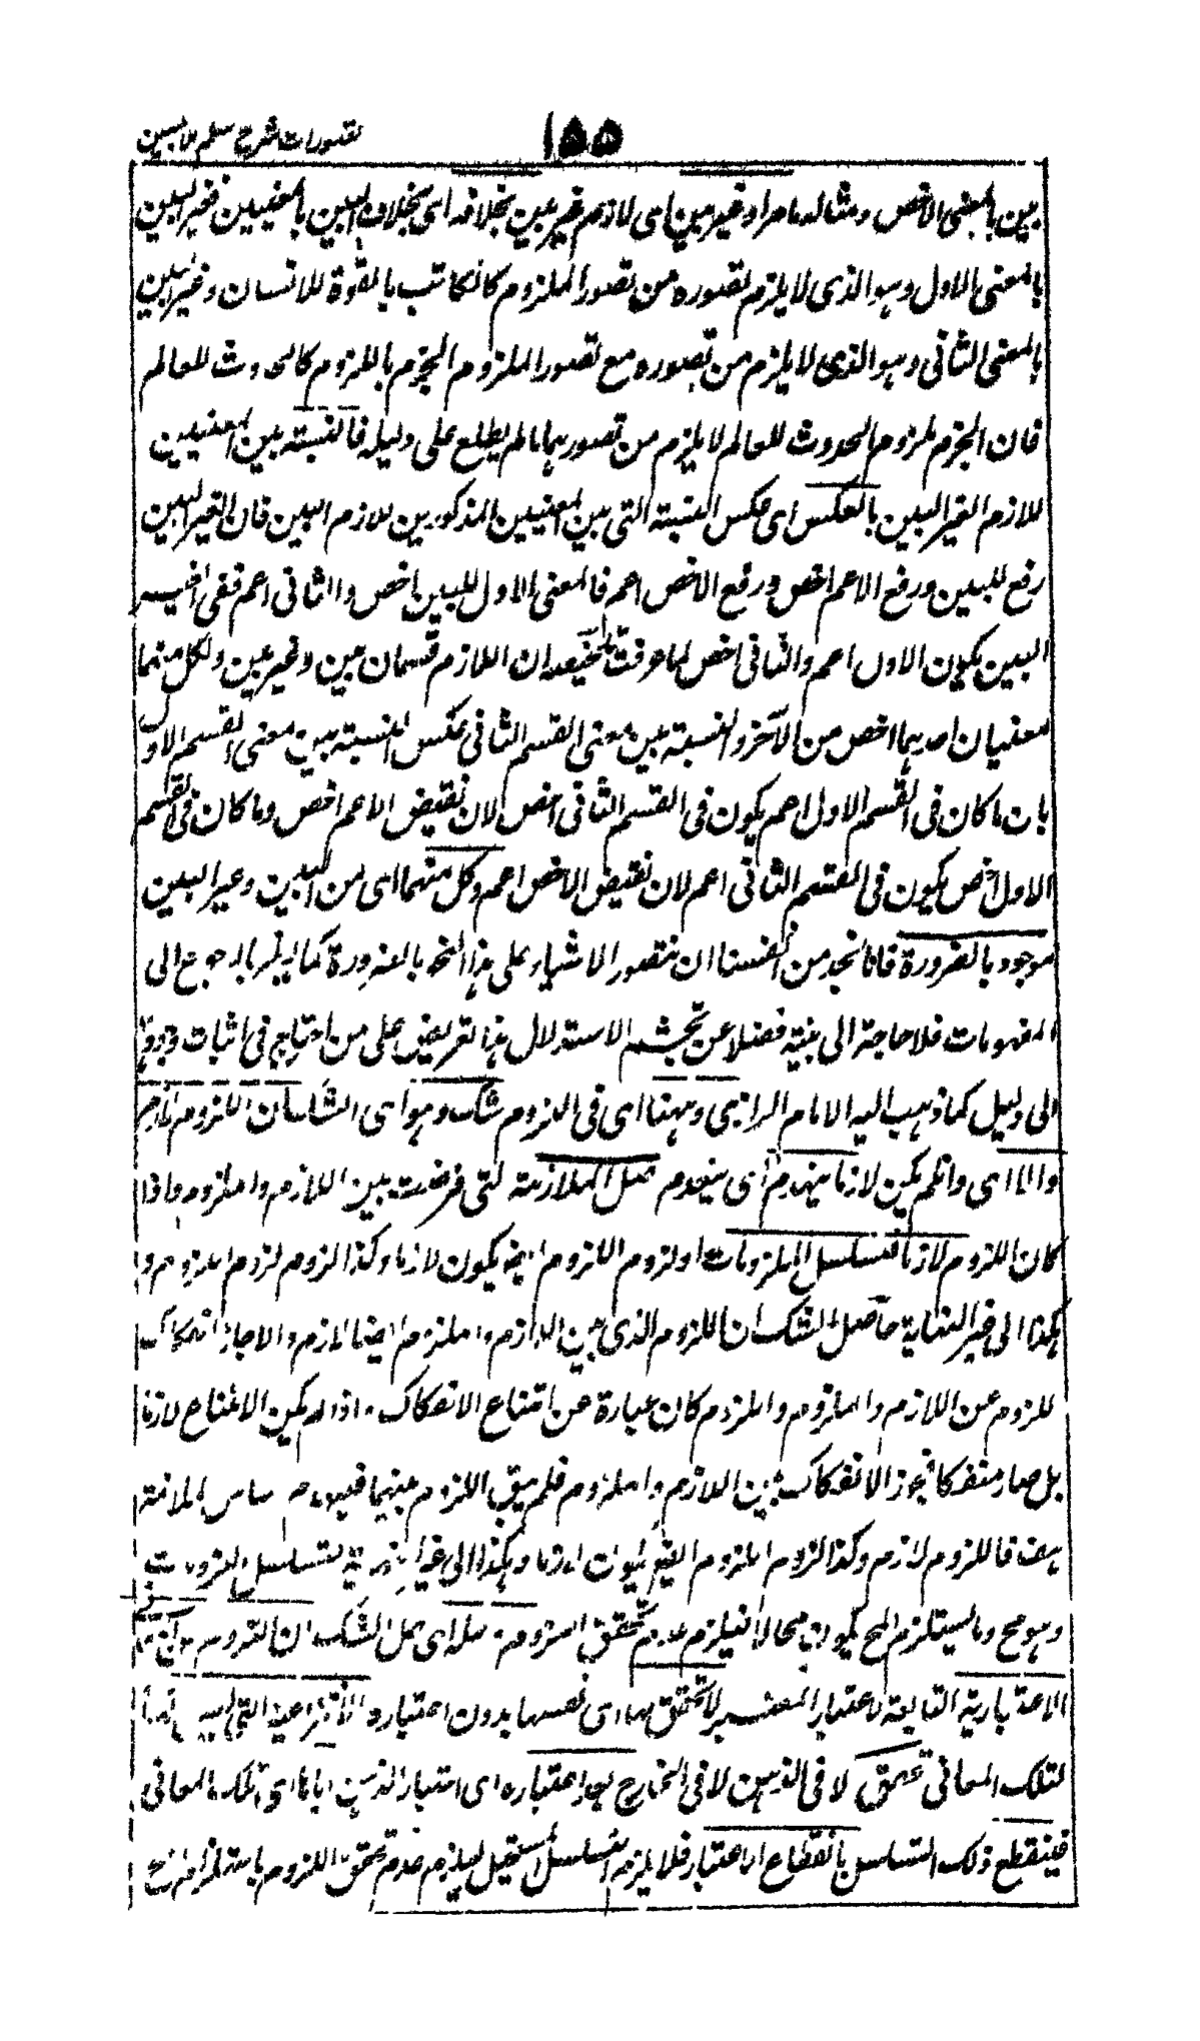 ١٥٥ تصورات شرح سلم ملا مبين
بين بالمعنى الاخص ومثاله ما مر او غير بين اى لازم غير بين بخلافه اى بخلاف البين بالمعنيين فغير البين
بالمعنى الاول وهو الذى لا يلزم تصوره من تصور الملزوم كالكاتب بالقوة للانسان وغير البين
بالمعنى الثانى وهو الذى لا يلزم من تصوره مع تصور الملزوم الجزم باللزوم كالحدوث للعالم
فان الجزم بلزوم الحدوث للعالم لا يلزم من تصورهما ما لم يطلع على دليله فالنسبة بين المعنيين
للازم الغير البين بالعكس اى عكس النسبة التى بين المعنيين المذكورين للازم البين فان الغير البين
رفع للبين ورفع الاعم اخص ورفع الاخص اعم فالمعنى الاول للبين اخص والثانى اعم ففى غير
البين يكون الاول اعم والثانى اخص لما عرفت تلخيصه ان اللازم قسمان بين وغير بين ولكل منهما
معنيان احدهما اخص من الآخر والنسبة بين معنى القسم الثانى عكس النسبة بين معنى القسم الاول
بان ما كان فى القسم الاول اعم يكون فى القسم الثانى اخص لان نقيض الاعم اخص وما كان فى القسم
الاول اخص يكون فى القسم الثانى اعم لان نقيض الاخص اعم وكل منهما اى من البين وغير البين
موجود بالضرورة فانا نجد من انفسنا ان نتصور الاشياء على هذا النحو بالضرورة كما يظهر بالرجوع الى
المفهومات فلا حاجة الى بنية فضلا عن تجشم الاستدلال هذا تعريض على من احتاج فى اثبات وجوده
الى دليل كما ذهب اليه الامام الرازى وههنا اى فى اللزوم شك وهو اى الشك ان اللزوم لازم
والا اى وان لم يكن لازما ينهدم اى ينعدم اصل الملازمة التى فرضت بين اللازم والملزوم واذا
كان اللزوم لازما فتسلسل اللزومات اولزوم اللزوم ايضا يكون لازما وكذا لزوم لزوم اللزوم و
هكذا الى غير النهاية حاصل الشك ان اللزوم الذى بين اللازم والملزوم ايضا لازم والا جاز انفكاك
اللزوم عن اللازم والملزوم واللزوم كان عبارة عن امتناع الانفكاك واذا لم يكن الامتناع لازما
بل صار منفكا فيجوز الانفكاك بين اللازم والملزوم فلم يبق اللزوم بينهما فينهدم اساس الملازمة
هف فاللزوم لازم وكذا لزوم اللزوم ايضا يكون لازما وهكذا الى غير النهاية فتسلسل اللزومات
وهو مح وما يستلزم المح يكون محالا فيلزم عدم تحقق اللزوم حله اى حل الشك ان اللزوم من المعانى
الاعتبارية التابعة لاعتبار المعتبر لا تحقق لها اى نفسها بدون اعتباره الانتزاعية التى ليس لها
لتلك المعانى تحقق لا فى الذهن لا فى الخارج بعد اعتباره اى اعتبار الذهن اياها اى تلك المعانى
فينقطع ذلك التسلسل بانقطاع الاعتبار فلا يلزم التسلسل المستحيل ليلزم عدم تحقق اللزوم باستلزامه المح